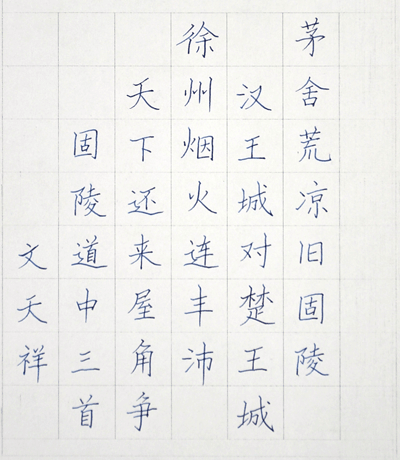 茅舍荒凉旧固陵
汉王城对楚王城
徐州烟火连丰沛
天下还来屋角争
固陵道中三首
文天祥